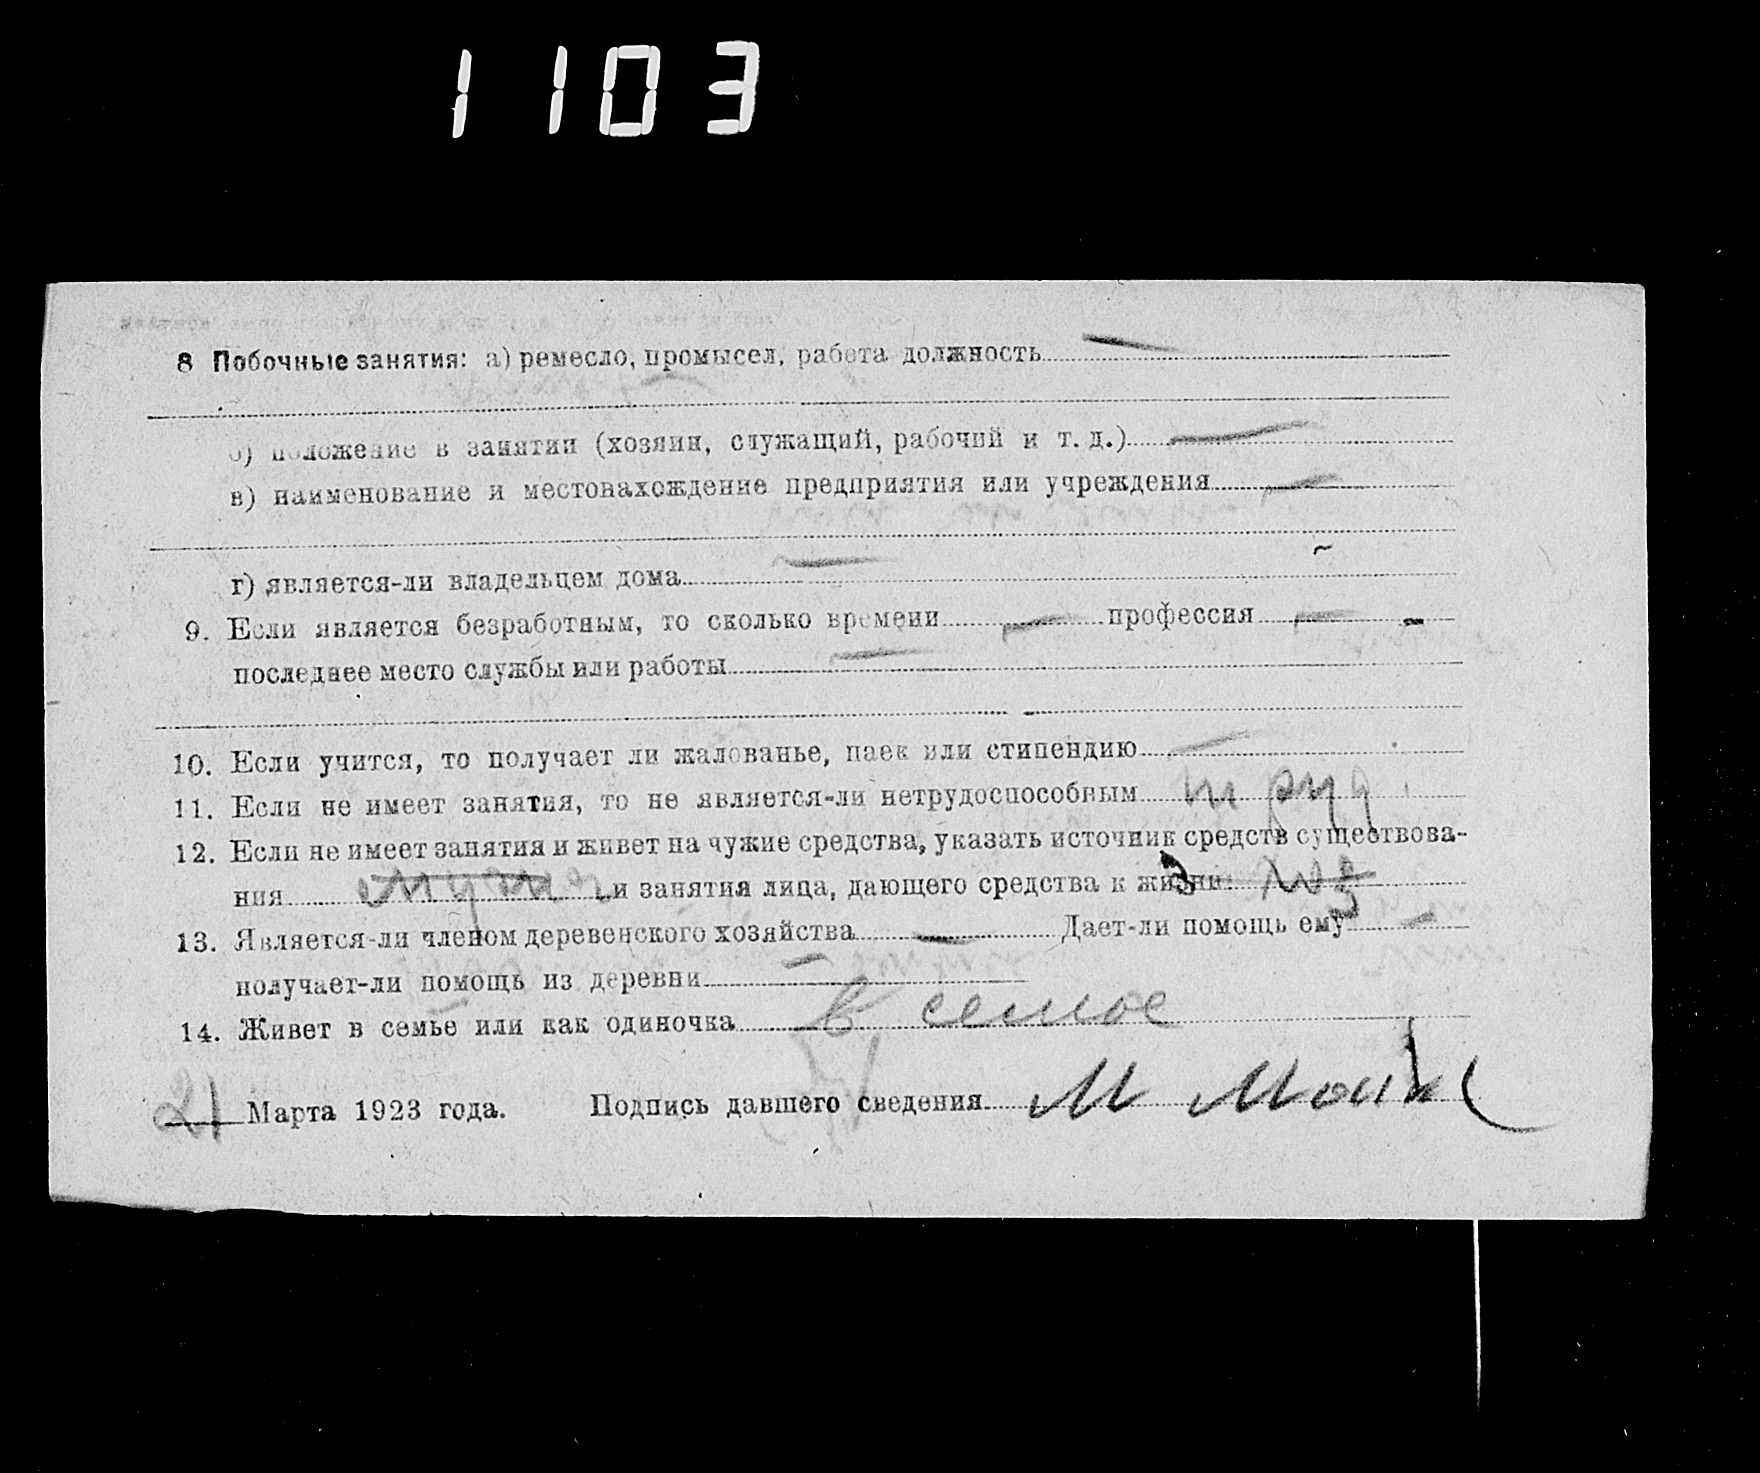 1103
8 Побочные занятия: а) ремесло, промысел, работа должность —
б) положение в занятии (хозяин, служащий, рабочий и т. д.) —
в) наименование и местонахождение предприятия или учреждения —
г) является-ли владельцем дома —
9. Если является безработным, то сколько времени — профессия —
последнее место службы или работы —
10. Если учится, то получает ли жалованье, паек или стипендию —
11. Если не имеет занятия, то не является-ли нетрудоспособным труд.
12. Если не имеет занятия и живет на чужие средства, указать источник средств существова-
ния и занятия лица, дающего средства к жизни
13. Является-ли членом деревенского хозяйства — Дает-ли помощь ему —
получает-ли помощь из деревни —
14. Живет в семье или как одиночка в семье
21 Марта 1923 года. Подпись давшего сведения М